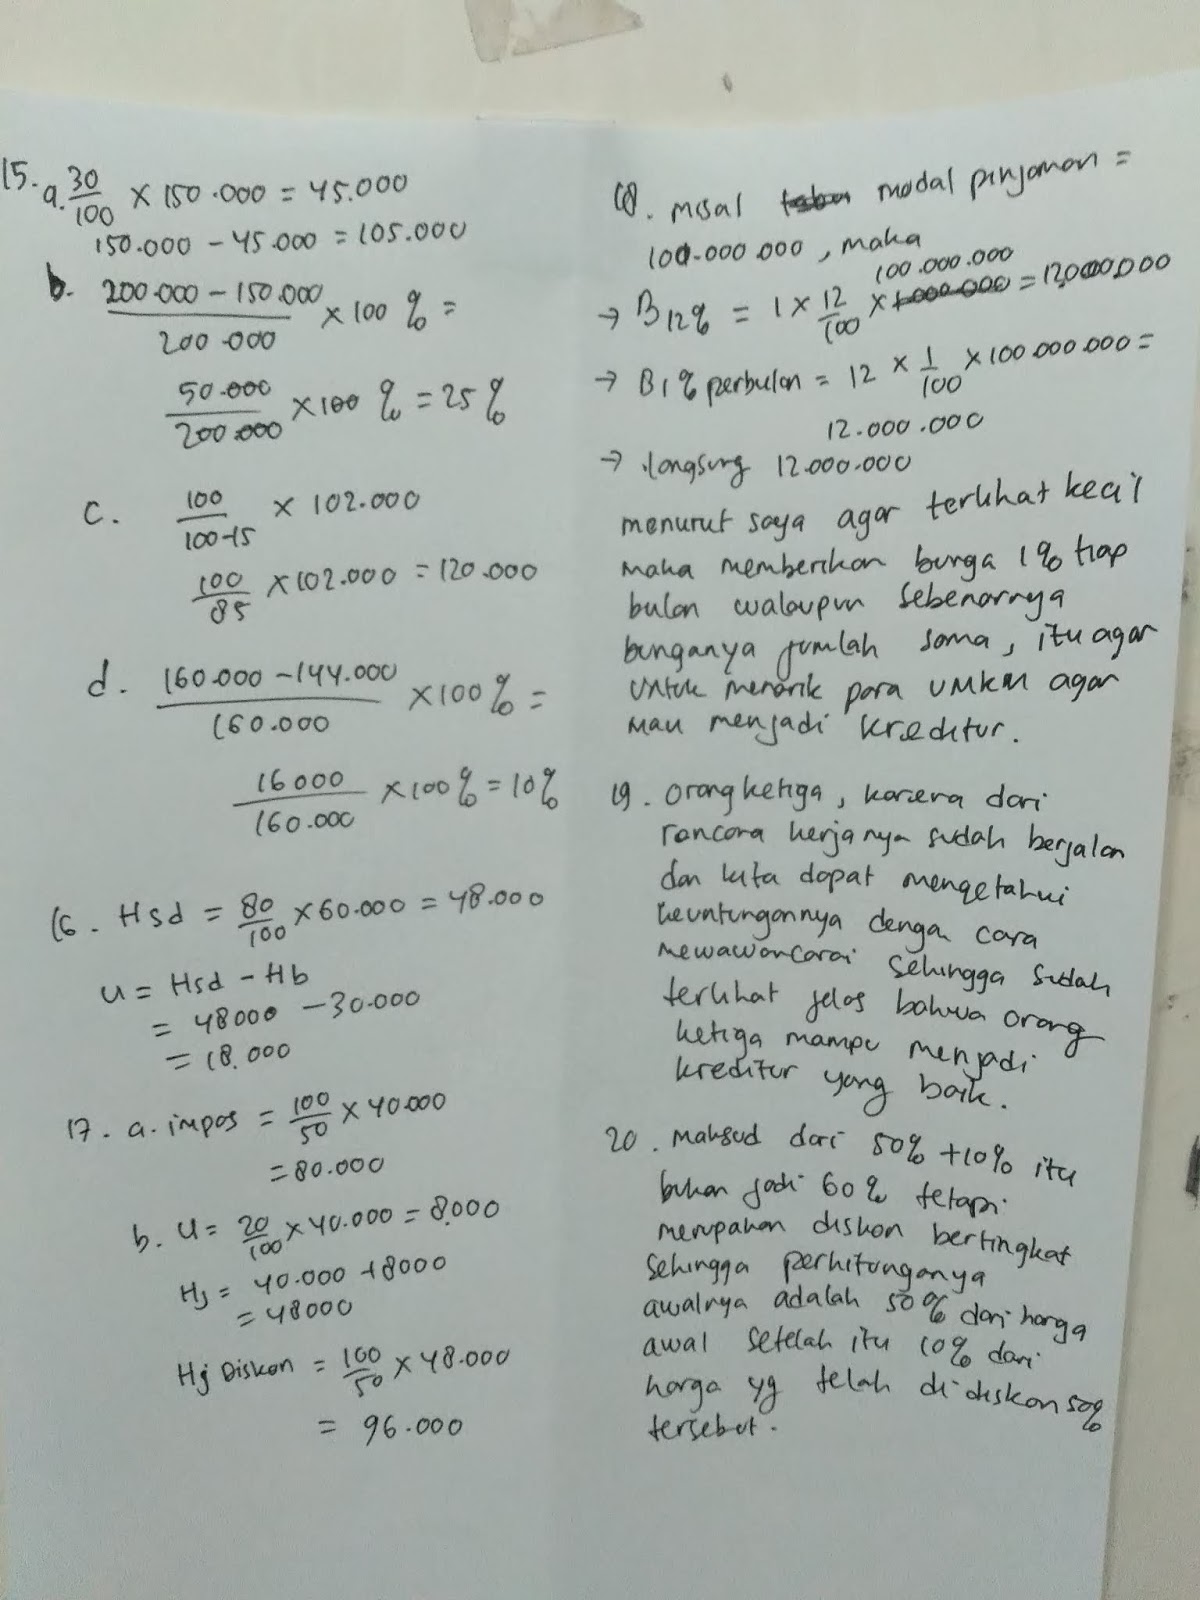 15. a. 30/100 × 150.000 = 45.000
150.000 – 45.000 = 105.000
b. (200.000 – 150.000)/200.000 × 100 % =
50.000/200.000 × 100 % = 25 %
c. 100/(100-15) × 102.000
100/85 × 102.000 = 120.000
d. (160.000 – 144.000)/160.000 × 100 % =
16000/160.000 × 100 % = 10%
16. Hsd = 80/100 × 60.000 = 48.000
u = Hsd – Hb
= 48000 – 30.000
= 18.000
17. a. impas = 100/50 × 40.000
= 80.000
b. u = 20/100 × 40.000 = 8.000
Hj = 40.000 + 8000
= 48000
Hj Diskon = 100/50 × 48.000
= 96.000
18. misal modal pinjaman =
100.000.000, maka
100.000.000
→ B12% = 1 × 12/100 × = 12.000.000
→ B1% perbulan = 12 × 1/100 × 100.000.000 =
12.000.000
→ langsung 12.000.000
menurut saya agar terlihat kecil
maka memberikan bunga 1% tiap
bulan walaupun sebenarnya
bunganya jumlah sama, itu agar
untuk menarik para UMKM agar
mau menjadi kreditur.
19. orang ketiga, karena dari
rencana kerjanya sudah berjalan
dan kita dapat mengetahui
keuntungannya dengan cara
mewawancarai sehingga sudah
terlihat jelas bahwa orang
ketiga mampu menjadi
kreditur yang baik.
20. Maksud dari 50% + 10% itu
bukan jadi 60% tetapi
merupakan diskon bertingkat
sehingga perhitungannya
awalnya adalah 50% dari harga
awal setelah itu 10% dari
harga yg telah di diskon 50%
tersebut.